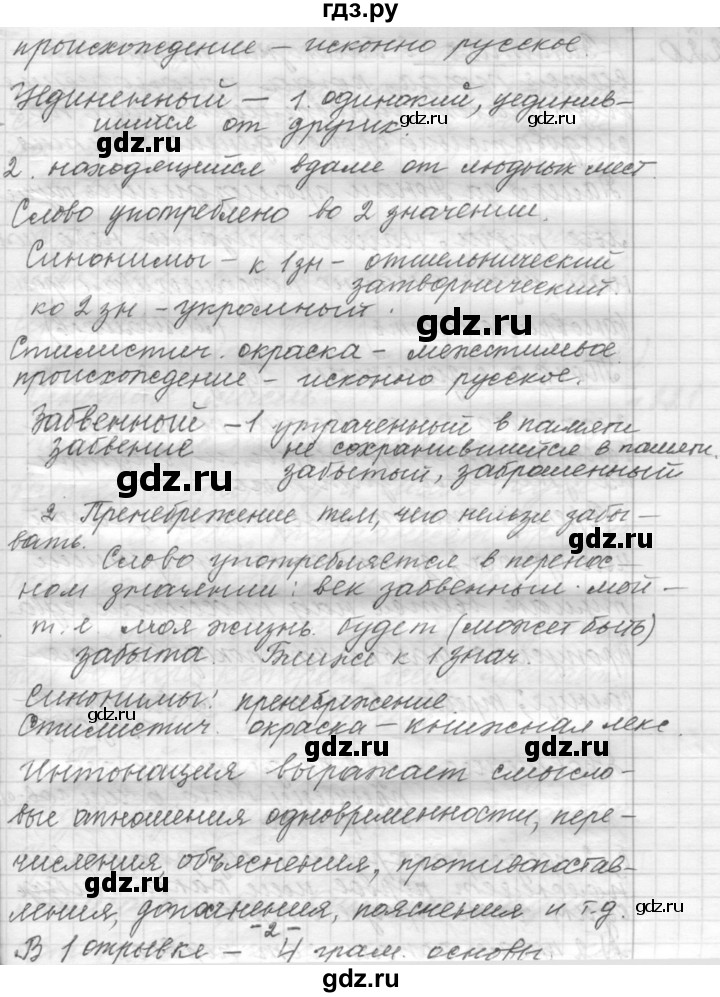 гдз.ру
происхождение – исконно русское.
Уединенный – 1. одинокий, уединив-
шийся от других.
2. находящийся вдали от людных мест.
Слово употреблено во 2 значении.
Синонимы – к 1 зн – отшельнический
затворнический
ко 2 зн – укромный.
Стилистич. окраска – межстилевое.
происхождение – исконно русское.
Забвенный – 1 утраченный в памяти
забвение не сохранившийся в памяти.
забытый, заброшенный
2. Пренебрежение тем, чего нельзя забы-
вать.
Слово употребляется в перенос-
ном значении: век забвенный мой –
т. е моя жизнь будет (может быть)
забыта. Ближе к 1 знач.
Синонимы: пренебрежение.
Стилистич. окраска – книжная лекс.
Интонация выражает смысло-
вые отношения одновременности, пере-
числения, объяснения, противопостав-
ления, дополнения, пояснения и т.д.
-2-
В 1 отрывке – 4 грам. основы.
gdz.ru
gdz.ru
gdz.ru
gdz.ru
gdz.ru
gdz.ru
gdz.ru
gdz.ru
gdz.ru
gdz.ru
gdz.ru
gdz.ru